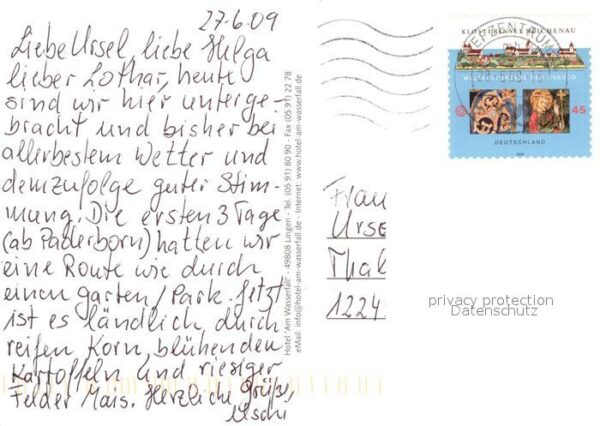 27.6.09
Liebe Ursel liebe Helga
lieber Lothar, heute
sind wir hier unterge-
bracht und bisher bei
allerbestem Wetter und
demzufolge guter Stim-
mung. Die ersten 3 Tage
(ab Paderborn) hatten wir
eine Route wie durch
einen Garten/Park. Jetzt
ist es ländlich durch
reifen Korn, blühenden
Kartoffeln und riesiger
Felder Mais. Herzliche Grüße,
Uschi
Hotel "Am Wasserfall" - 49808 Lingen - Tel. (05 91) 80 90 - Fax (05 91) 22 78
eMail: info@hotel-am-wasserfall.de - Internet: www.hotel-am-wasserfall.de
KLOSTERINSEL REICHENAU
WELTKULTURERBE DER UNESCO
45
DEUTSCHLAND
Frau
Urse
Thal
1224
privacy protection
Datenschutz